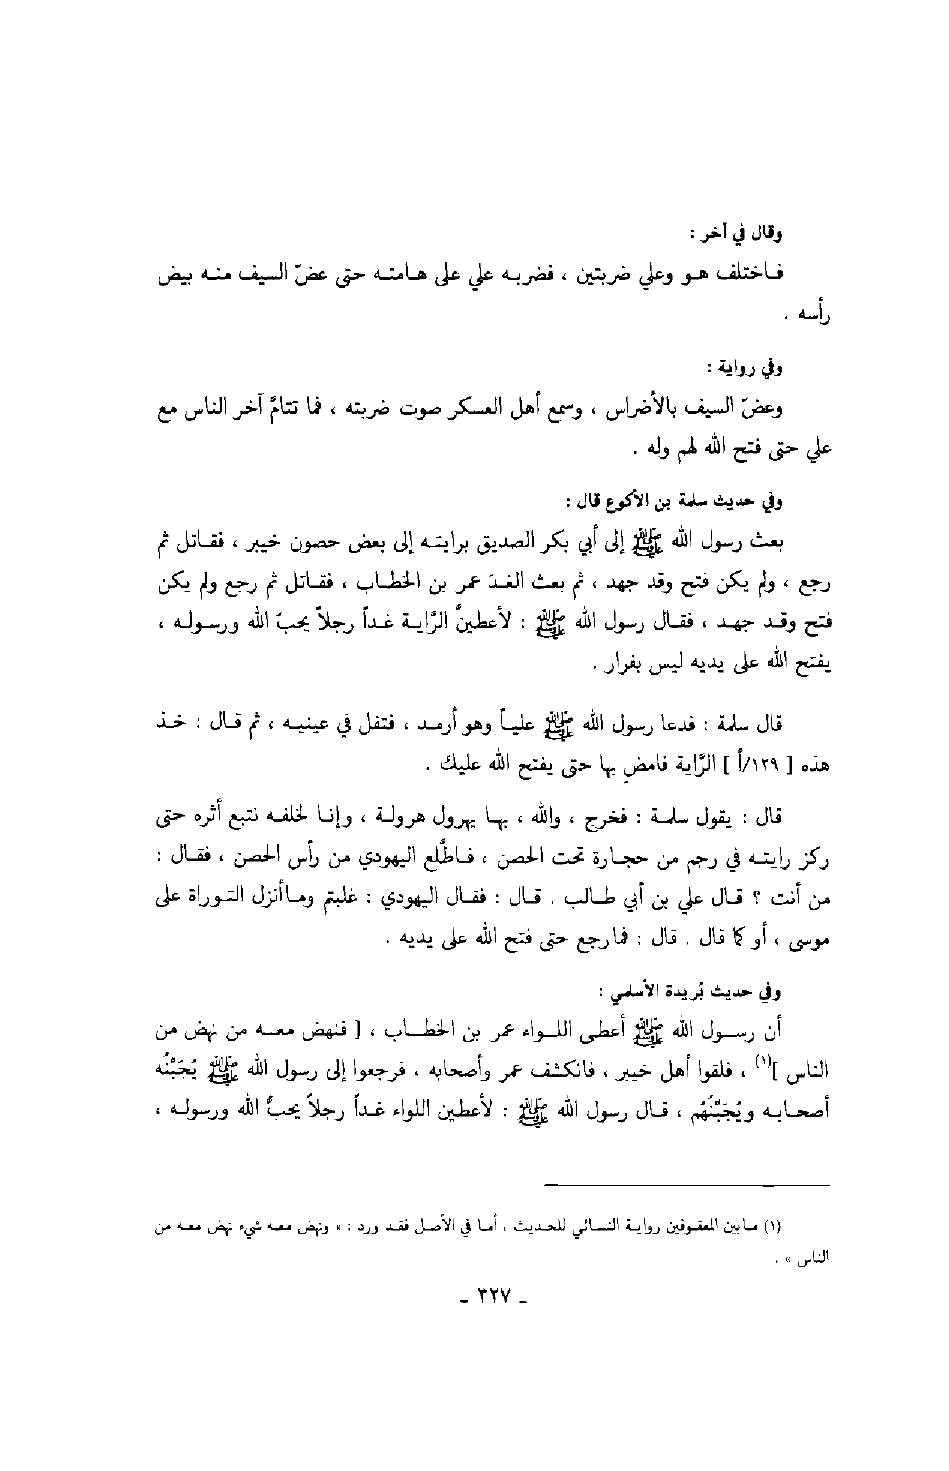 وقال في آخر :
فاختلف هو وعلي ضربتين ، فضربه علي على هامته حتى عضّ السيف منه بيض
رأسه .
وفي رواية :
وعضّ السيف بالأضراس ، وسمع أهل العسكر صوت ضربته ، فما تتامَّ آخر الناس مع
علي حتى فتح الله لهم وله .
وفي حديث سلمة بن الأكوع قال :
بعث رسول الله ﷺ إلى أبي بكر الصديق برايته إلى بعض حصون خيبر ، فقاتل ثم
رجع ، ولم يكن فتح وقد جهد ، ثم بعث الغدَ عمر بن الخطاب ، فقاتل ثم رجع ولم يكن
فتح وقد جهد ، فقال رسول الله ﷺ : لأعطينَّ الرَّاية غداً رجلاً يحبّ الله ورسوله ،
يفتح الله على يديه ليس بفرار .
قال سلمة : فدعا رسول الله ﷺ علياً وهو أرمد ، فتفل في عينيه ، ثم قال : خذ
هذه [ ١٢٩/أ ] الرَّاية فامض بها حتى يفتح الله عليك .
قال : يقول سلمة : فخرج ، والله ، بها يهرول هرولة ، وإنا لخلفه نتبع أثره حتى
ركز رايته في رجم من حجارة تحت الحصن ، فاطَّلع اليهودي من رأس الحصن ، فقال :
من أنت ؟ قال علي بن أبي طالب . قال : فقال اليهودي : غلبتم وماأنزل التوراة على
موسى ، أو كما قال . قال : فمارجع حتى فتح الله على يديه .
وفي حديث بُريدة الأسلمي :
أن رسول الله ﷺ أعطى اللواء عمر بن الخطاب ، [ فنهض معه من نهض من
الناس ](١) ، فلقوا أهل خيبر ، فانكشف عمر وأصحابه ، فرجعوا إلى رسول الله ﷺ يُجَبِّنُه
أصحابه ويُجَبِّنُهُم ، قال رسول الله ﷺ : لأعطين اللواء غداً رجلاً يحبُّ الله ورسوله ،
(١) مابين المعقوفين رواية النسائي للحديث ، أما في الأصل فقد ورد : « ونهض معه شيء نهض معه من
الناس » .
- ٣٢٧ -